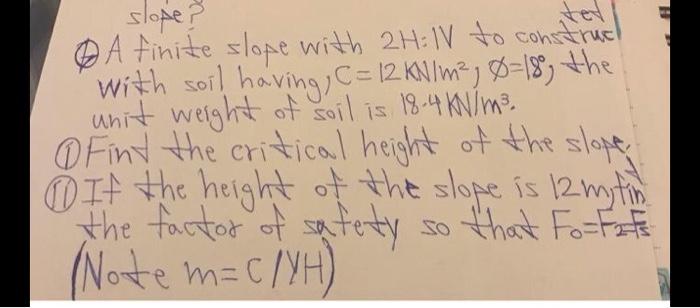 slope?
④ A finite slope with 2H:1V to constructed
with soil having, C=12 KN/m², Ø=18°, the
unit weight of soil is 18.4 KN/m³.
① Find the critical height of the slope.
⑪ If the height of the slope is 12m, find
the factor of safety so that Fo=F2=Fs
(Note m=C/γH)